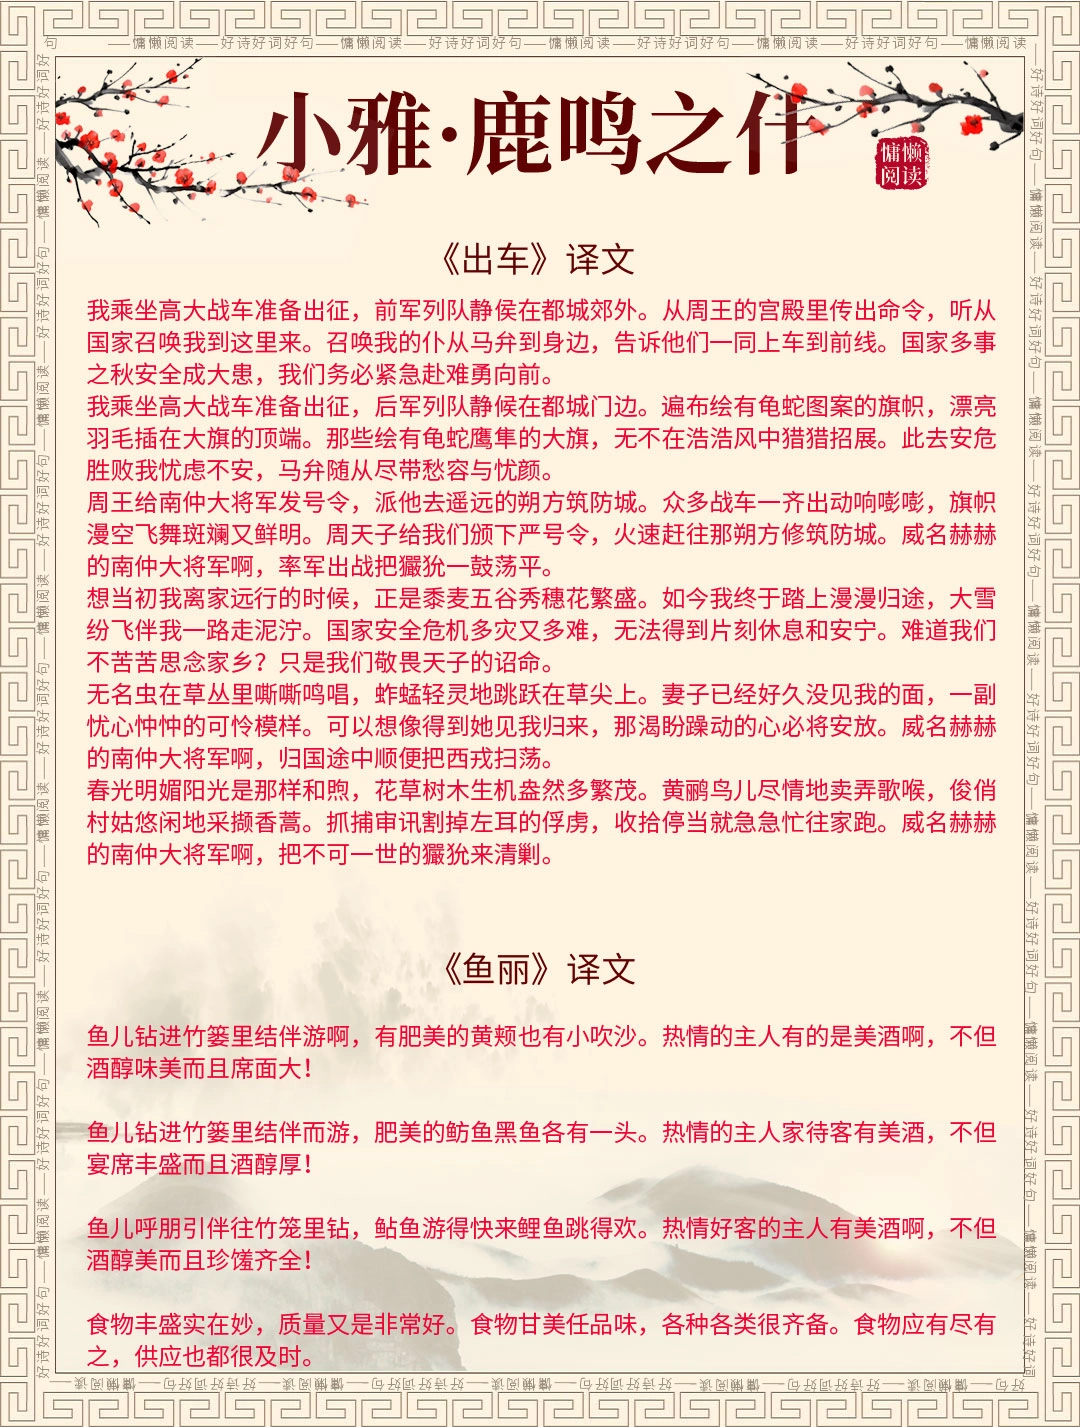 句 ——慵懒阅读——好诗好词好句——慵懒阅读——好诗好词好句——慵懒阅读——好诗好词好句——慵懒阅读——好诗好词好句——慵懒阅读
小雅·鹿鸣之什
慵懒
阅读
《出车》译文
我乘坐高大战车准备出征，前军列队静侯在都城郊外。从周王的宫殿里传出命令，听从
国家召唤我到这里来。召唤我的仆从马弁到身边，告诉他们一同上车到前线。国家多事
之秋安全成大患，我们务必紧急赴难勇向前。
我乘坐高大战车准备出征，后军列队静候在都城门边。遍布绘有龟蛇图案的旗帜，漂亮
羽毛插在大旗的顶端。那些绘有龟蛇鹰隼的大旗，无不在浩浩风中猎猎招展。此去安危
胜败我忧虑不安，马弁随从尽带愁容与忧颜。
周王给南仲大将军发号令，派他去遥远的朔方筑防城。众多战车一齐出动响嘭嘭，旗帜
漫空飞舞斑斓又鲜明。周天子给我们颁下严号令，火速赶往那朔方修筑防城。威名赫赫
的南仲大将军啊，率军出战把玁狁一鼓荡平。
想当初我离家远行的时候，正是黍麦五谷秀穗花繁盛。如今我终于踏上漫漫归途，大雪
纷飞伴我一路走泥泞。国家安全危机多灾又多难，无法得到片刻休息和安宁。难道我们
不苦苦思念家乡？只是我们敬畏天子的诏命。
无名虫在草丛里嘶嘶鸣唱，蚱蜢轻灵地跳跃在草尖上。妻子已经好久没见我的面，一副
忧心忡忡的可怜模样。可以想像得到她见我归来，那渴盼躁动的心必将安放。威名赫赫
的南仲大将军啊，归国途中顺便把西戎扫荡。
春光明媚阳光是那样和煦，花草树木生机盎然多繁茂。黄鹂鸟儿尽情地卖弄歌喉，俊俏
村姑悠闲地采撷香蒿。抓捕审讯割掉左耳的俘虏，收拾停当就急急忙往家跑。威名赫赫
的南仲大将军啊，把不可一世的玁狁来清剿。
《鱼丽》译文
鱼儿钻进竹篓里结伴游啊，有肥美的黄颊也有小吹沙。热情的主人有的是美酒啊，不但
酒醇味美而且席面大！
鱼儿钻进竹篓里结伴而游，肥美的鲂鱼黑鱼各有一头。热情的主人家待客有美酒，不但
宴席丰盛而且酒醇厚！
鱼儿呼朋引伴往竹笼里钻，鲇鱼游得快来鲤鱼跳得欢。热情好客的主人有美酒啊，不但
酒醇美而且珍馐齐全！
食物丰盛实在妙，质量又是非常好。食物甘美任品味，各种各类很齐备。食物应有尽有
之，供应也都很及时。